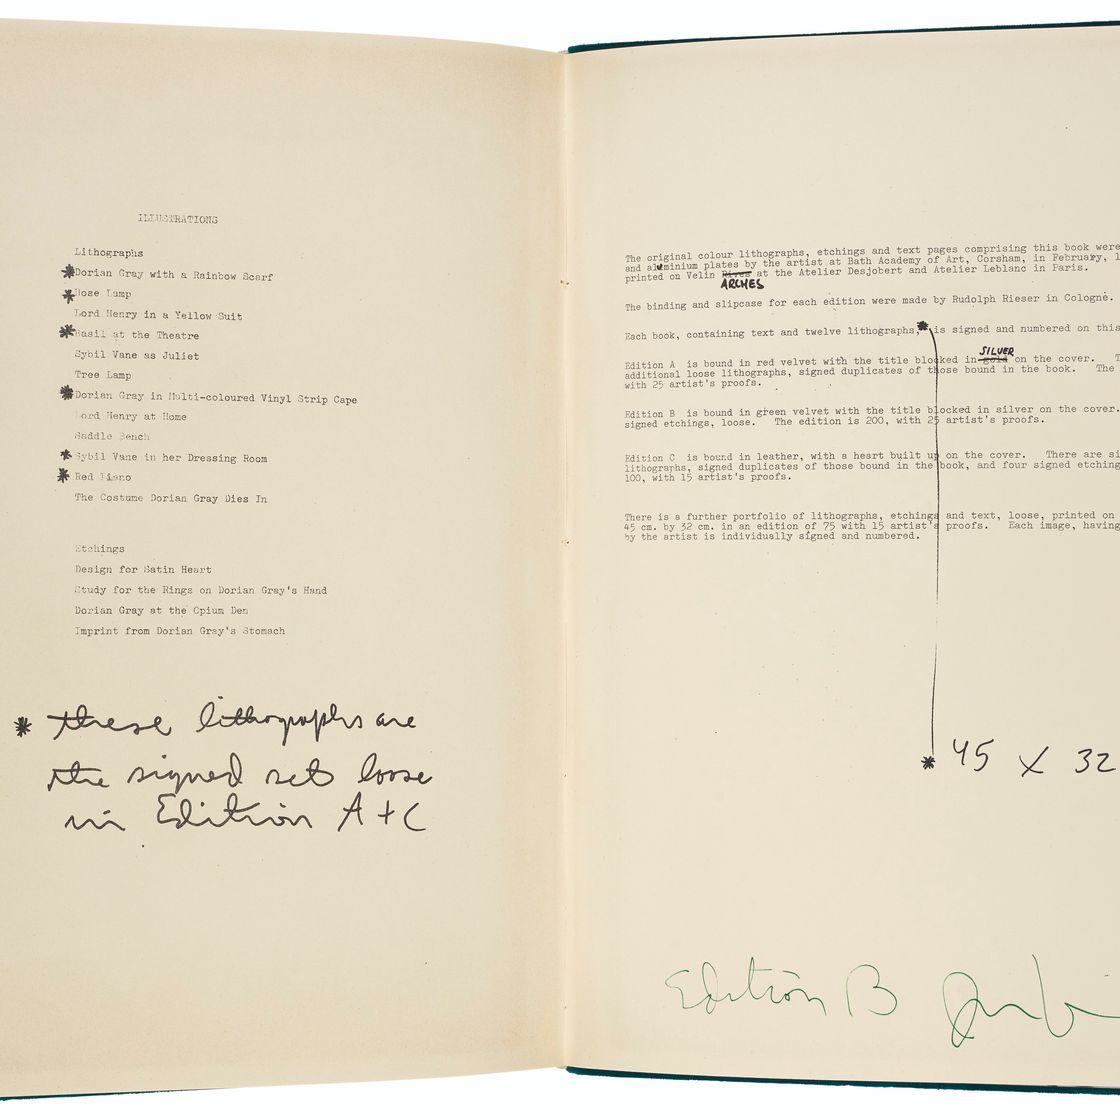 ILLUSTRATIONS
Lithographs
*Dorian Gray with a Rainbow Scarf
*Hose Lamp
Lord Henry in a Yellow Suit
*Basil at the Theatre
Sybil Vane as Juliet
Tree Lamp
*Dorian Gray in Multi-coloured Vinyl Strip Cape
Lord Henry at Home
Saddle Bench
*Sybil Vane in her Dressing Room
*Red Piano
The Costume Dorian Gray Dies In
Etchings
Design for Satin Heart
Study for the Rings on Dorian Gray's Hand
Dorian Gray at the Opium Den
Imprint from Dorian Gray's Stomach
* these lithographs are
the signed sets loose
in Edition A + C
The original colour lithographs, etchings and text pages comprising this book were
and aluminium plates by the artist at Bath Academy of Art, Corsham, in February,
printed on Velin Rives at the Atelier Desjobert and Atelier Leblanc in Paris.
ARCHES
The binding and slipcase for each edition were made by Rudolph Rieser in Cologne.
Each book, containing text and twelve lithographs,* is signed and numbered on this
SILVER
Edition A is bound in red velvet with the title blocked in gold on the cover.
additional loose lithographs, signed duplicates of those bound in the book. The
with 25 artist's proofs.
Edition B is bound in green velvet with the title blocked in silver on the cover.
signed etchings, loose. The edition is 200, with 25 artist's proofs.
Edition C is bound in leather, with a heart built up on the cover. There are si
lithographs, signed duplicates of those bound in the book, and four signed etching
100, with 15 artist's proofs.
There is a further portfolio of lithographs, etchings and text, loose, printed on
45 cm. by 32 cm. in an edition of 75 with 15 artist's proofs. Each image, having
by the artist is individually signed and numbered.
* 45 X 32
Edition B